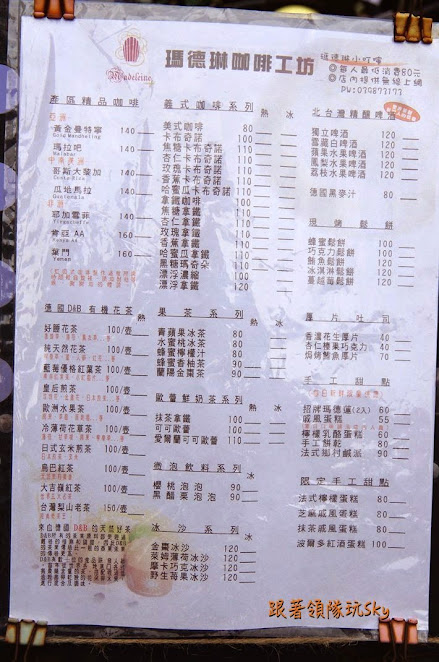 Madeleine
瑪德琳咖啡工坊
瑪德琳小叮嚀
◎每人最低消費80元
◎店內提供無線上網
產區精品咖啡
亞洲
黃金曼特寧 140
瑪拉吧 140
中南美洲
哥斯大黎加 140
瓜地馬拉 140
非洲
耶加雪菲 140
肯亞AA 140
葉門 160
德國D&B有機花茶
好睡花茶 100/壺
純天然花茶 100/壺
藍莓優格紅葉茶 100/壺
皇后煎茶 100/壺
歐洲水果茶 100/壺
冷薄荷花草茶 100/壺
日式玄米煎茶 100/壺
烏巴紅茶 100/壺
大吉嶺紅茶 100/壺
台灣梨山老茶 150/壺
來自德國D&B的天然好茶
義式咖啡系列 熱 冰
美式咖啡 80
卡布奇諾 100
焦糖卡布奇諾 120
杏仁卡布奇諾 120
玫瑰卡布奇諾 120
香蕉卡布奇諾 120
哈蜜瓜卡布奇諾 120
拿鐵咖啡 100
焦糖拿鐵 120
杏仁拿鐵 120
玫瑰拿鐵 120
香蕉拿鐵 120
哈蜜瓜拿鐵 120
黑糖瑪奇朵 120
漂浮濃縮 120
漂浮拿鐵 120
果茶系列 熱 冰
青蘋果冰茶 80
水蜜桃冰茶 80
蜂蜜檸檬汁 80
蜂蜜香柚茶 90
蘭陽金棗茶 90
歐蕾鮮奶茶系列 熱 冰
抹茶拿鐵 100
可可歐蕾 100
愛爾蘭可可歐蕾 100
微泡飲料系列
櫻桃泡泡 100
黑醋栗泡泡 90
冰沙系列
金棗冰沙 120
萊姆薄荷冰沙 120
摩卡巧克冰沙 120
野生莓果冰沙 120
北台灣精釀啤酒
獨立啤酒 120
雪藏白啤酒 120
蘋果水果啤酒 120
鳳梨水果啤酒 120
荔枝水果啤酒 120
德國黑麥汁 80
現烤鬆餅
蜂蜜鬆餅 80
巧克力鬆餅 80
鮪魚鬆餅 80
冰淇淋鬆餅 80
蔓越莓鬆餅 80
厚片吐司
香濃花生厚片 40
杏仁榛果巧克力 40
焗烤鮪魚厚片 70
手工甜點
招牌瑪德蓮(2入) 60
戚風蛋糕 55
檸檬乳酪蛋糕 60
手工餅乾 80
法式鄉村鹹派 90
限定手工甜點
法式檸檬蛋糕 80
芝麻戚風蛋糕 80
抹茶戚風蛋糕 80
波爾多紅酒蛋糕 100
跟著領隊玩Sky